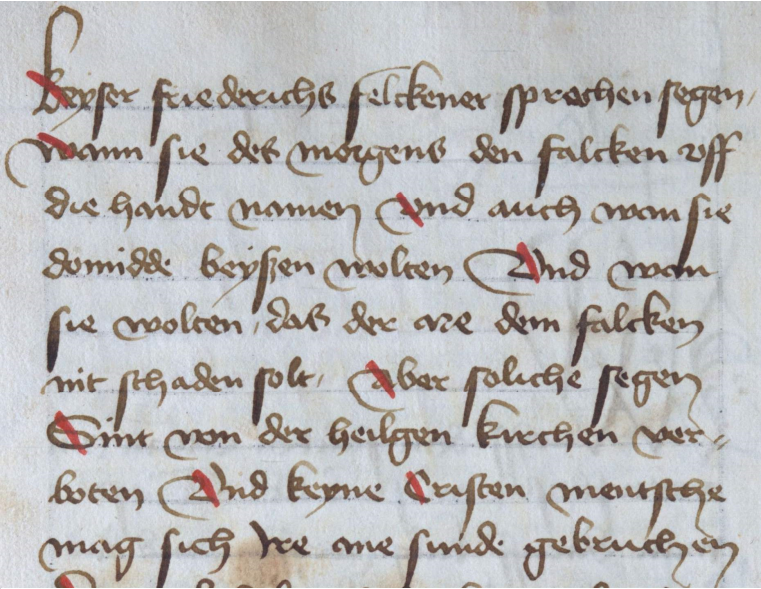 Keyser friederichs felckener sprochen segen,
Wann sie des morgens den falcken vff
die handt namen Vnd auch wan sie
domidde beyszen wolten Vnd wan
sie wolten, das der are dem falcken
nit schaden solt, Aber soliche segen
Sint von der heilgen kirchen ver-
boten Vnd keyne Cristen mentsche
mag sich Ire ane sunde gebruchen